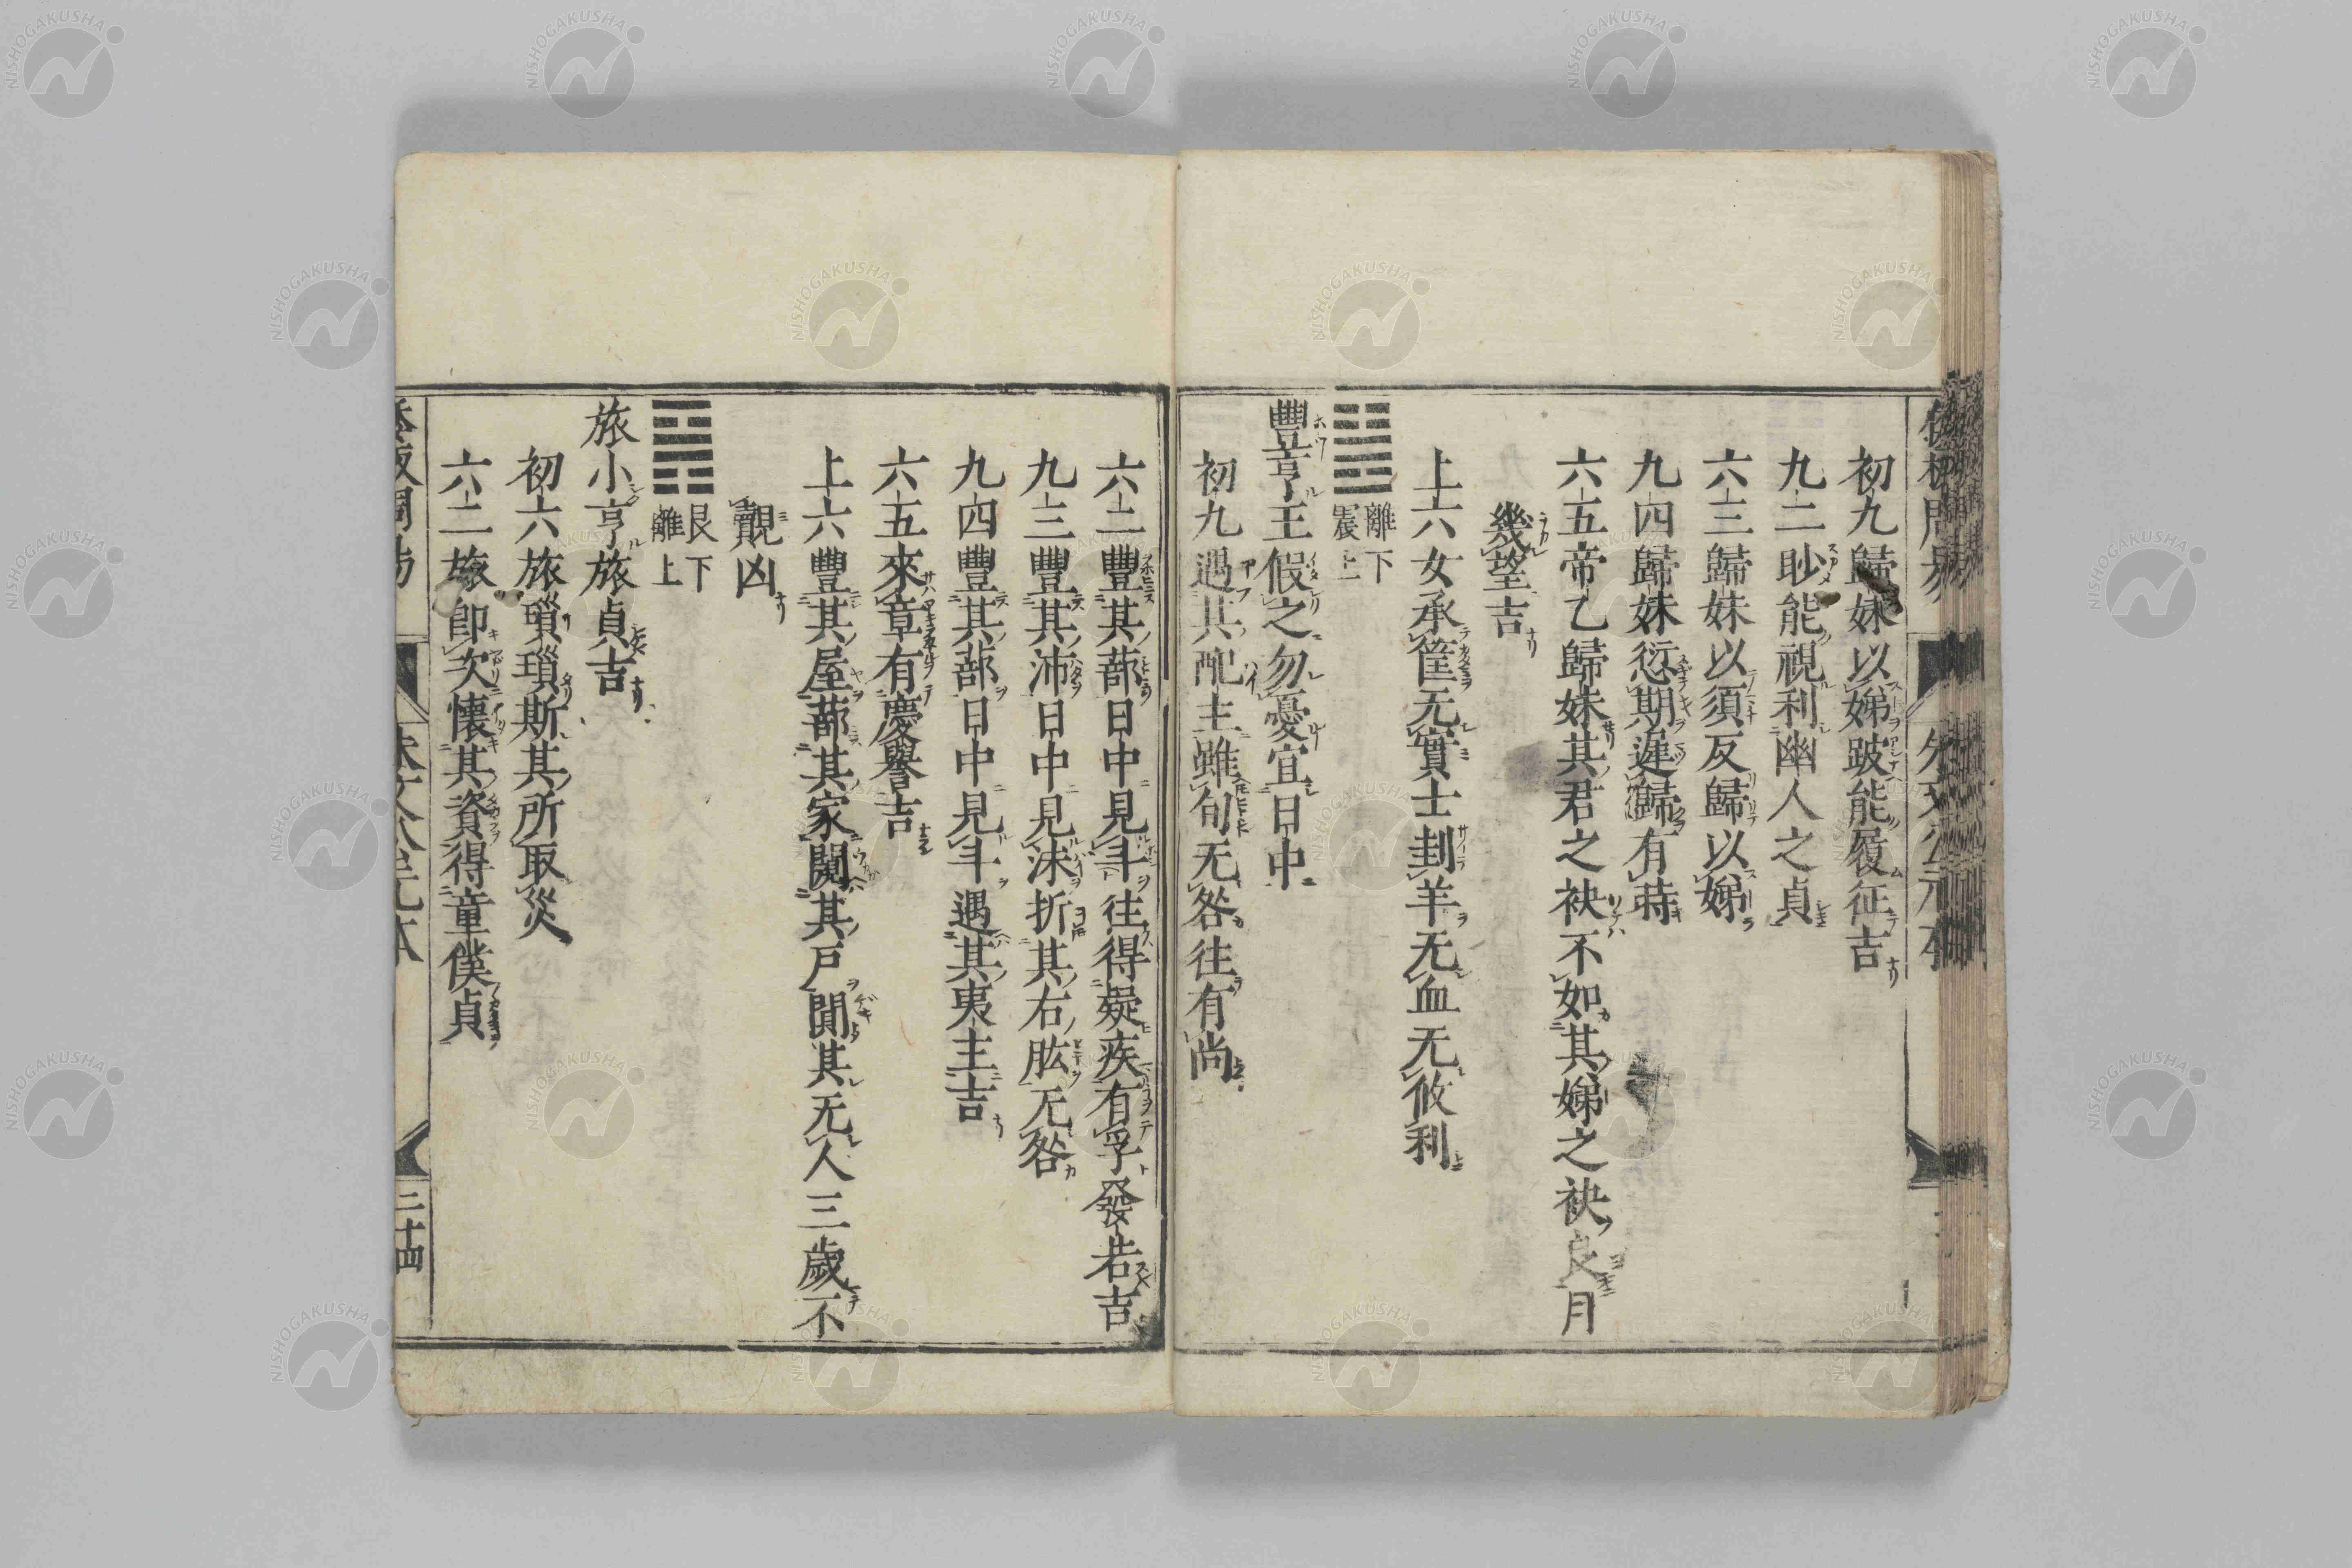 初九歸妹以娣跛能履征吉
九二眇能視利幽人之貞
六三歸妹以須反歸以娣
九四歸妹愆期遲歸有時
六五帝乙歸妹其君之袂不如其娣之袂良月
幾望吉
上六女承筐无實士刲羊无血无攸利
離下
震上
豐亨王假之勿憂宜日中
初九遇其配主雖旬无咎往有尚
六二豐其蔀日中見斗往得疑疾有孚發若吉
九三豐其沛日中見沬折其右肱无咎
九四豐其蔀日中見斗遇其夷主吉
六五來章有慶譽吉
上六豐其屋蔀其家闚其戸闃其无人三歲不
覿凶
艮下
離上
旅小亨旅貞吉
初六旅瑣瑣斯其所取災
六二旅卽次懷其資得童僕貞
二十四
NISHOGAKUSHA